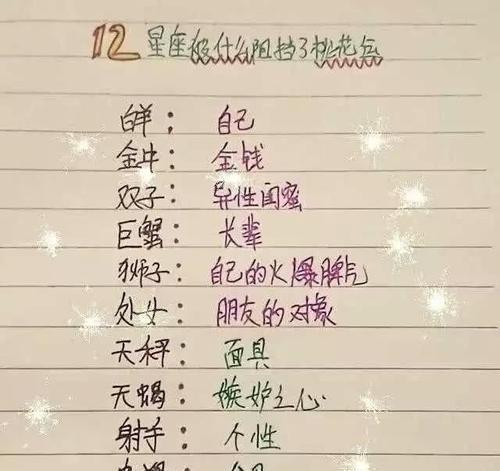 12星座被什么阻挡了桃花运
白羊：自己
金牛：金钱
双子：异性闺蜜
巨蟹：长辈
狮子：自己的火爆脾气
处女：朋友的对象
天秤：面具
天蝎：嫉妒之心
射手：个性